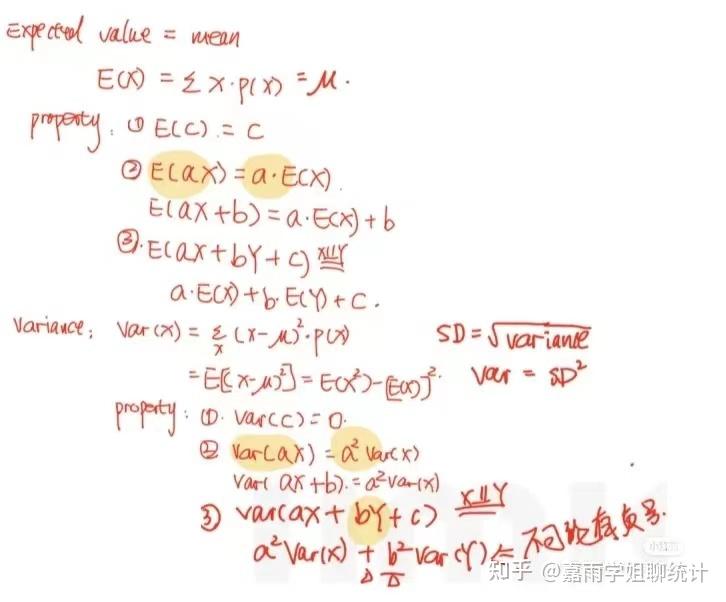 Expected value = mean
E(X) = Σ X·P(X) = μ.
property: ① E(C) = C
② E(aX) = a·E(X).
E(aX+b) = a·E(X)+b
③. E(aX+bY+c) X⫫Y
a·E(X)+b·E(Y)+C.
Variance: Var(X) = Σx (X-μ)²·P(X)
SD = √variance
= E[(X-μ)²] = E(X²)-[E(X)]².
Var = SD²
property: ①. Var(C)=0.
② Var(aX) = a² Var(X)
Var(aX+b) = a²Var(X)
③ Var(aX+bY+c) X⫫Y
a²Var(X) + b²Var(Y) ← 不可能有负号.
小红书
知乎 @嘉雨学姐聊统计